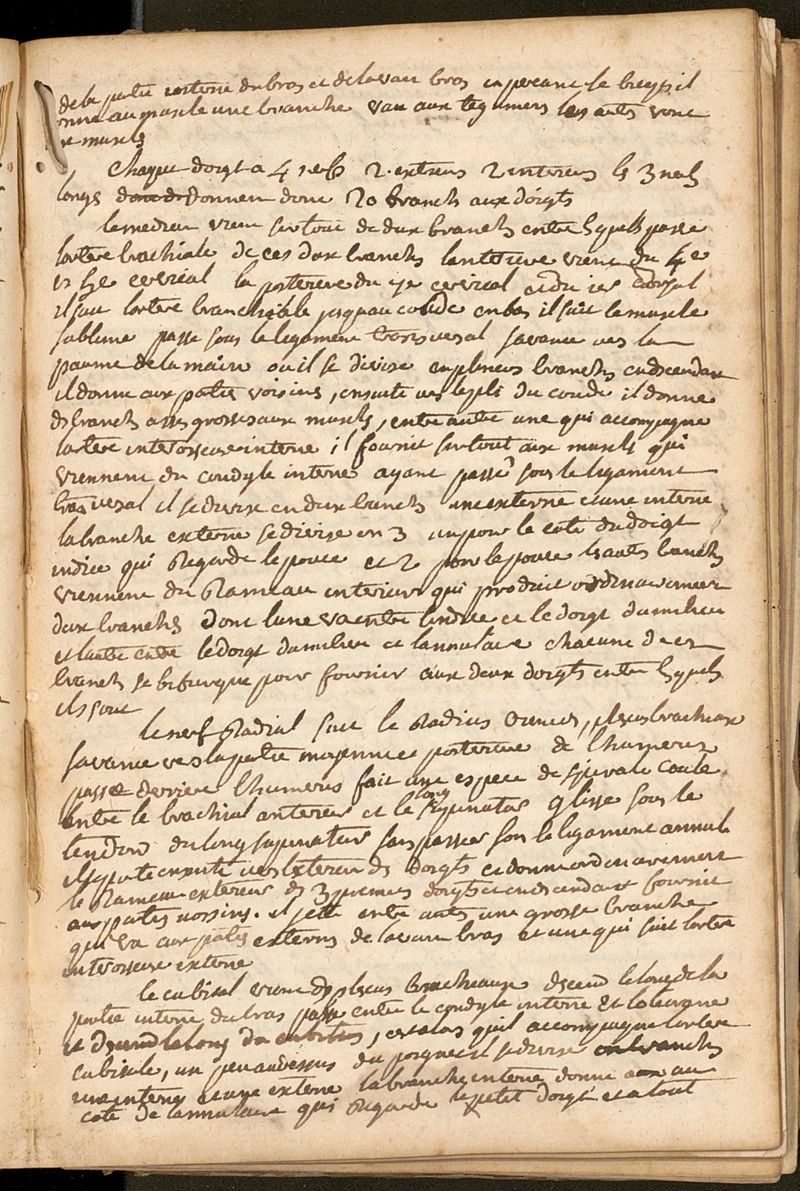 de la partie interne du bras et de lavan bras en percant le biceps il
donne au muscle une branche va aux tegumens les autes vont
aux muscls
Chaque doigt a 4 nerfs 2 externs 2 interns ls 3 nerfs
longs donnen donc 20 branchs aux doigts
le median vient surtout de dux branchs entre lsquells passe
lartere brachiale de ces dux branchs lanterieure vient du 4e
et 5e cervical la posterieure du 7e cervical et du 1er dorsal
il suit lartere branchiale jusquau coude en bas il suit le muscle
sublime passe sous le ligament transversal savance vers la
paume de la main ou il se divise en plusieurs branchs en descendant
il donne aux partis voisins, ensuite vers le pli du coude il donne
ds branchs asses grosses aux muscls, entre autre une qui accompagne
lartere interosseuse interne il fournit surtout aux muscls qui
viennent du condyle interne ayant passé sous le ligament
transversal il se divise en dux branchs une externe et une interne
la branche externe se divise en 3 un pour le coté du doigt
indice qui regarde le pouce et 2 pour le pouce ls auts branchs
viennent du Rameau interieur qui produit ordinairement
dux branchs dont lune va entre lindice et le doigt du milieu
et lautre entre le doigt du milieu et lannulaire chacune de ces
branchs se bifurque pour fournir aux deux doigts entre lsquels
ils sont
le nerf Radial suit le Radius vient du plexus brachiaux
savance vers la partie moyenne et posterieure de lhumerus
passe derriere lhumerus fait une espece de spirale coule
entre le brachial anterieur et le long supinator glisse sous le
tendon du long supinateur sans passer sous le ligament annul
il se porte ensuite vers lexterieur ds doigts et donne ordinairement
le Rameau exterieur ds 3 premiers doigts et en descendant fournit
aux partis voisins. il jette entre auts une grosse branche
qui va aux partis externs de lavan bras et une qui suit lartere
interosseuse externe
le cubital vient du plexus brachiaux descend le long de la
partie interne du bras passe entre le condyle interne et lolecrane
et descend le long du cubitus, est alors quil accompagne lartere
cubitale, un peu au dessus du poignet il se divise en branchs
une interne et une externe la branche interne donne au
coté de lannulaire qui regarde le petit doigt et a tout